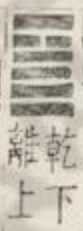 乾下
離上